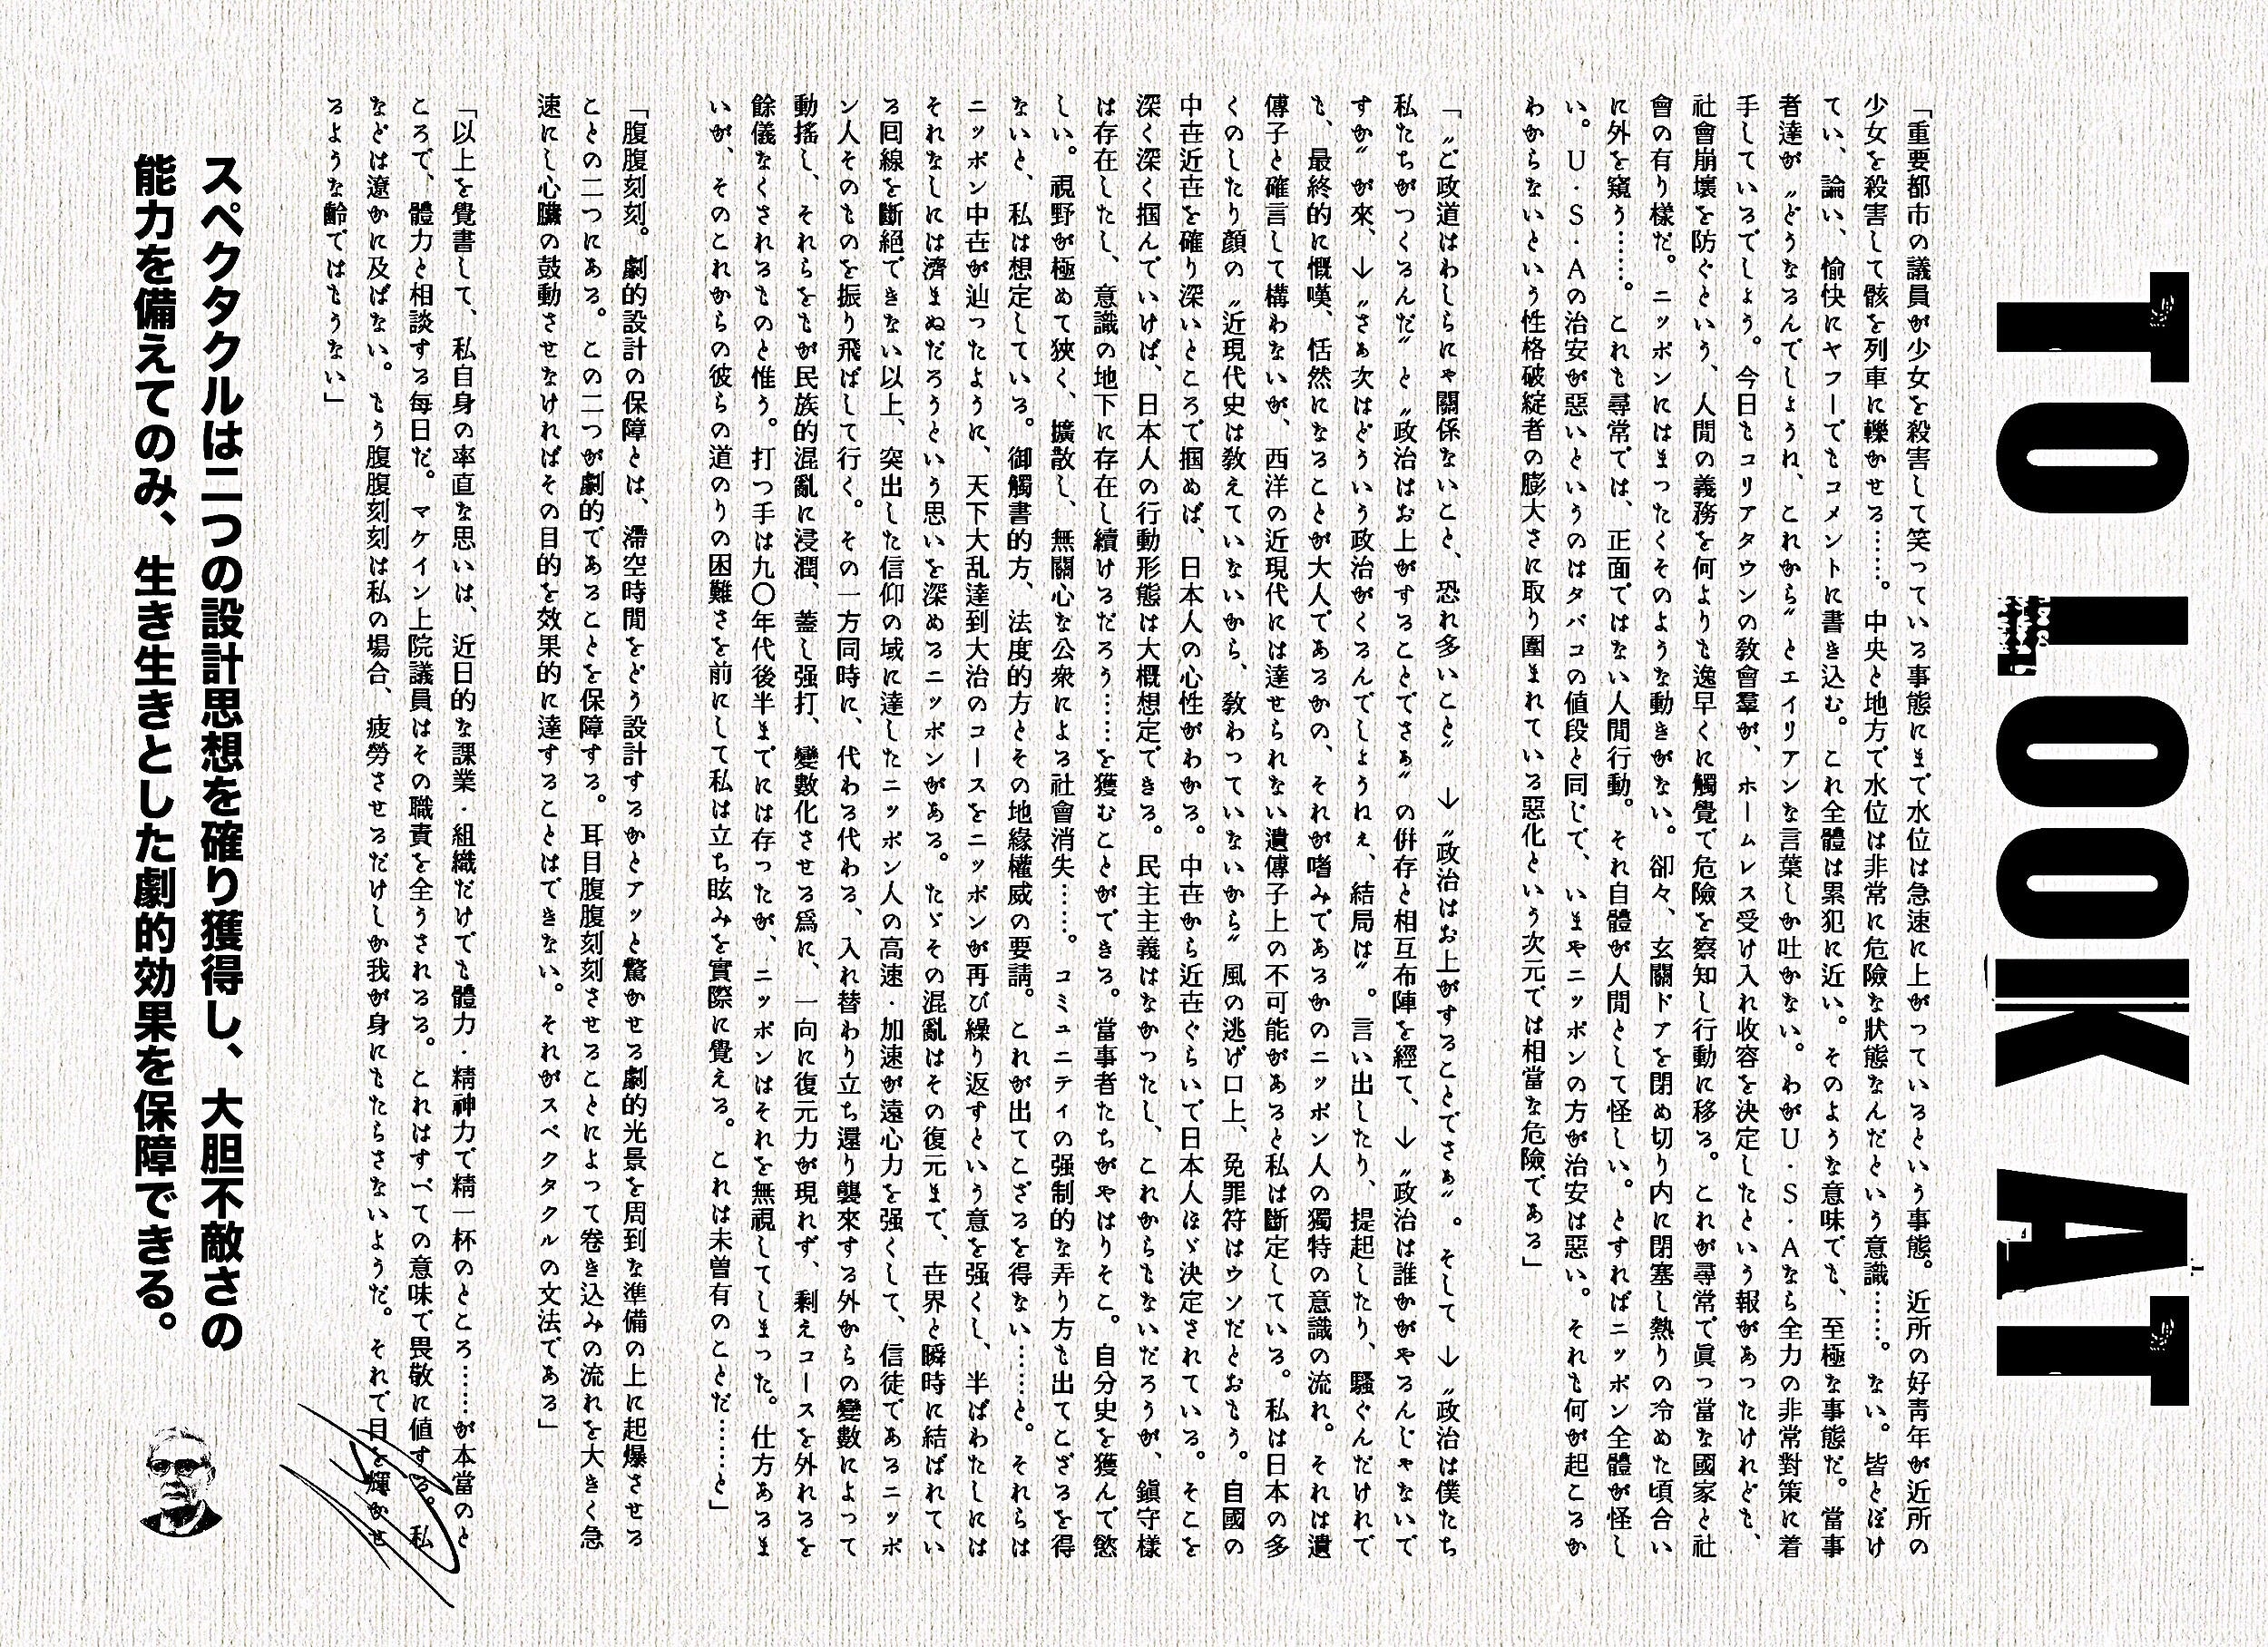 TO LOOK AT
「重要都市の議員が少女を殺害して笑っている事態にまで水位は急速に上がっているという事態。近所の好靑年が近所の
少女を殺害して骸を列車に轢かせる……。中央と地方で水位は非常に危險な狀態なんだという意識……。ない。皆とぼけ
てい、論い、愉快にヤフーでもコメントに書き込む。これ全體は累犯に近い。そのような意味でも、至極な事態だ。當事
者達が〝どうなるんでしょうれ、これから〟とエイリアンな言葉しか吐かない。わがU・S・Aなら全力の非常對策に着
手しているでしょう。今日もコリアタウンの敎會羣が、ホームレス受け入れ收容を決定したという報があったけれども、
社會崩壞を防ぐという、人間の義務を何よりも逸早くに觸覺で危險を察知し行動に移る。これが尋常で眞っ當な國家と社
會の有り樣だ。ニッポンにはまったくそのような動きがない。卻々、玄關ドアを閉め切り内に閉塞し熱りの冷めた頃合い
に外を窺う……。これも尋常では、正面ではない人間行動。それ自體が人間として怪しい。とすればニッポン全體が怪し
い。U・S・Aの治安が惡いというのはタバコの値段と同じで、いまやニッポンの方が治安は惡い。それも何が起こるか
わからないという性格破綻者の膨大さに取り圍まれている惡化という次元では相當な危險である」
「〝ご政道はわしらにゃ關係ないこと、恐れ多いこと〟→〝政治はお上がすることでさぁ〟。そして→〝政治は僕たち
私たちがつくるんだ〟と〝政治はお上がすることでさぁ〟の倂存と相互布陣を經て、→〝政治は誰かがやるんじゃないで
すか〟が來、→〝さぁ次はどういう政治がくるんでしょうねぇ、結局は〟。言い出したり、提起したり、騷ぐんだけれで
も、最終的に慨嘆、恬然になることが大人であるかの、それが嗜みであるかのニッポン人の獨特の意識の流れ。それは遺
傳子と確言して構わないが、西洋の近現代には達せられない遺傳子上の不可能があると私は斷定している。私は日本の多
くのしたり顔の〝近現代史は敎えていないから、敎わっていないから〟風の逃げ口上、免罪符はウソだとおもう。自國の
中世近世を確り深いところで掴めば、日本人の心性がわかる。中世から近世ぐらいで日本人ほゞ決定されている。そこを
深く深く掴んでいけば、日本人の行動形態は大概想定できる。民主主義はなかったし、これからもないだろうが、鎭守樣
は存在したし、意識の地下に存在し續けるだろう……を獲むことができる。當事者たちがやはりそこ。自分史を獲んで慾
しい。視野が極めて狹く、擴散し、無關心な公衆による社會消失……。コミュニティの强制的な弄り方も出てこざるを得
ないと、私は想定している。御觸書的方、法度的方とその地緣權威の要請。これが出てこざるを得ない……と。それらは
ニッポン中世が辿ったように、天下大乱達到大治のコースをニッポンが再び繰り返すという意を强くし、半ばわたしには
それなしには濟まぬだろうという思いを深めるニッポンがある。たゞその混亂はその復元まで、世界と瞬時に結ばれてい
る回線を斷絕できない以上、突出した信仰の域に達したニッポン人の高速・加速が遠心力を强くして、信徒であるニッポ
ン人そのものを振り飛ばして行く。その一方同時に、代わる代わる、入れ替わり立ち還り襲來する外からの變數によって
動搖し、それらをもが民族的混亂に浸潤、蓋し强打、變數化させる爲に、一向に復元力が現れず、剩えコースを外れるを
餘儀なくされるものと惟う。打つ手は九〇年代後半までには存ったが、ニッポンはそれを無視してしまった。仕方あるま
いが、そのこれからの彼らの道のりの困難さを前にして私は立ち眩みを實際に覺える。これは未曽有のことだ……と」
「腹腹刻刻。劇的設計の保障とは、滯空時間をどう設計するかとアッと驚かせる劇的光景を周到な準備の上に起爆させる
ことの二つにある。この二つが劇的であることを保障する。耳目腹腹刻刻させることによって卷き込みの流れを大きく急
速にし心臟の鼓動させなければその目的を效果的に達することはできない。それがスペクタクルの文法である」
「以上を覺書して、私自身の率直な思いは、近日的な課業・組織だけでも體力・精神力で精一杯のところ……が本當のと
ころで、體力と相談する每日だ。マケイン上院議員はその職責を全うされるる。これはすべての意味で畏敬に値する。私
などは遼かに及ばない。もう腹腹刻刻は私の場合、疲勞させるだけしか我が身にもたらさないようだ。それで目を輝かせ
るような齡ではもうない」
スペクタクルは二つの設計思想を確り獲得し、大胆不敵さの
能力を備えてのみ、生き生きとした劇的効果を保障できる。